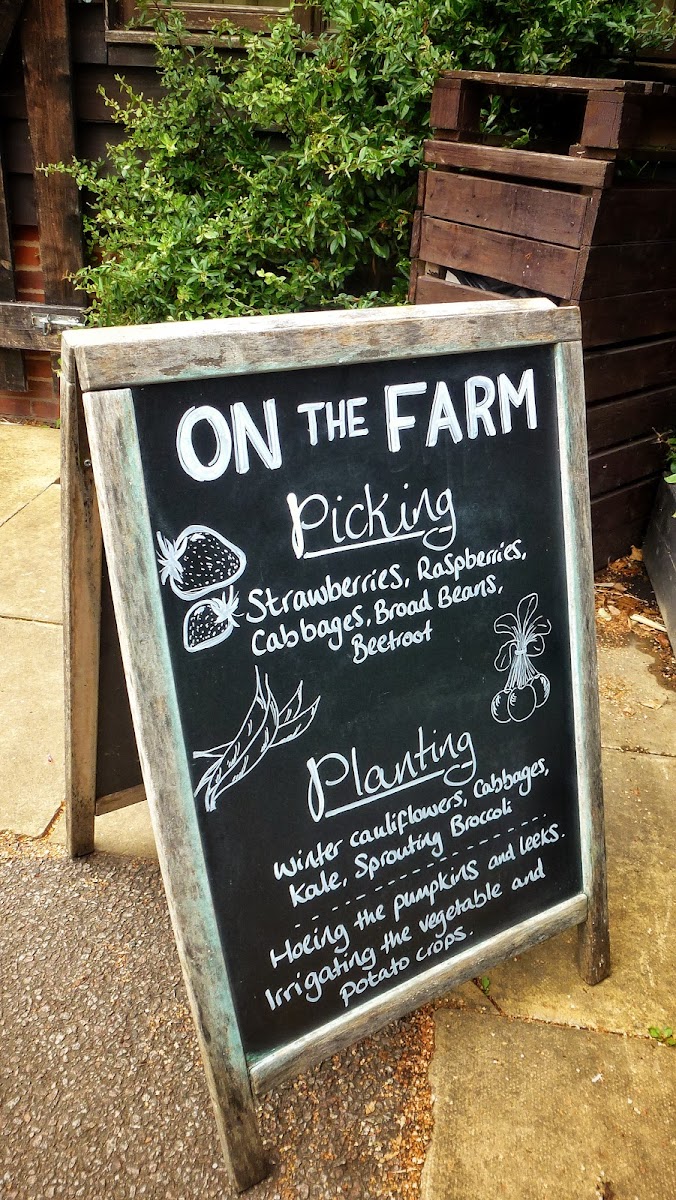 ON THE FARM
Picking
Strawberries, Raspberries,
Cabbages, Broad Beans,
Beetroot
Planting
Winter cauliflowers, Cabbages,
Kale, Sprouting Broccoli
Hoeing the pumpkins and leeks.
Irrigating the vegetable and
Potato crops.